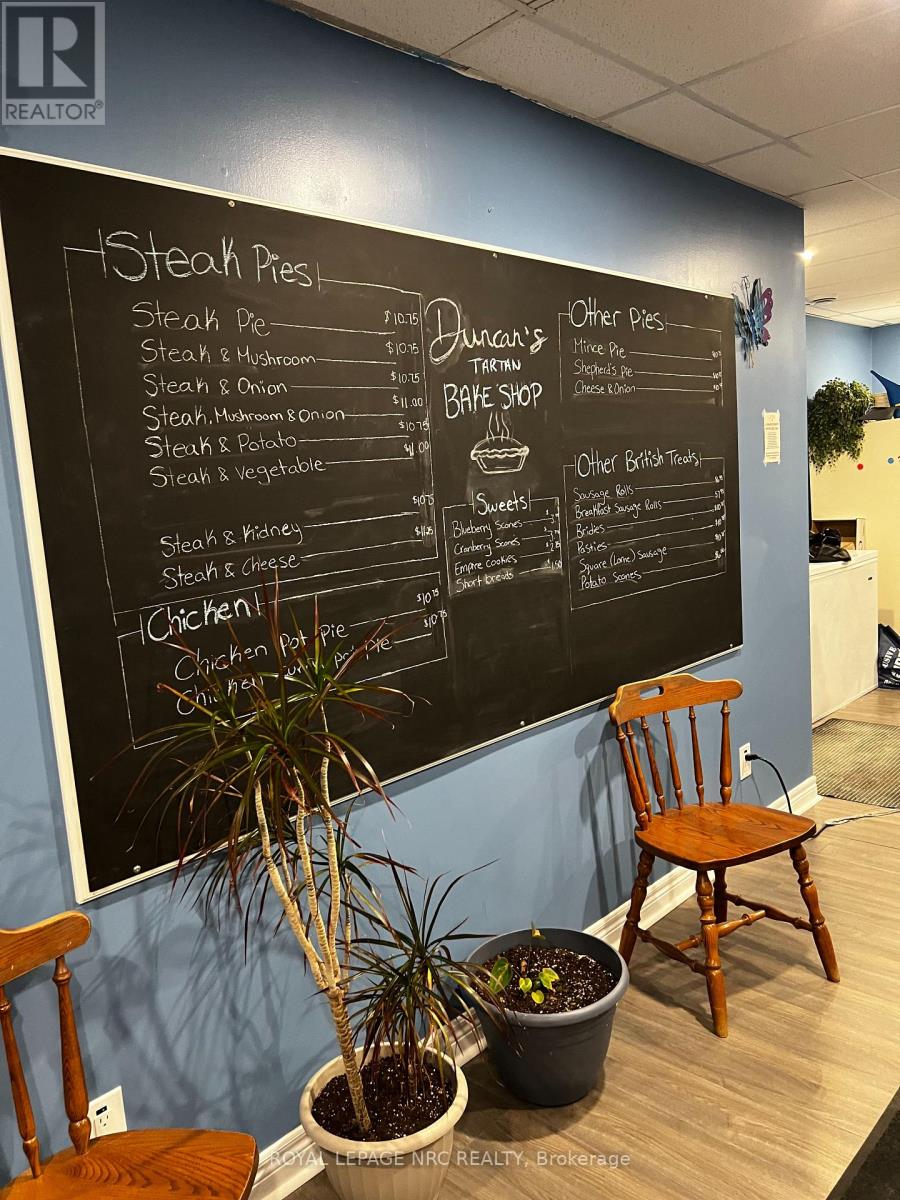 REALTOR®
Steak Pies
Steak Pie $10.75
Steak & Mushroom $10.75
Steak & Onion $10.75
Steak, Mushroom & Onion $11.00
Steak & Potato $10.75
Steak & Vegetable $11.00
Steak & Kidney $10.75
Steak & Cheese $11.25
Chicken
Chicken Pot Pie $10.75
Chicken Pie $10.75
Duncan's
TARTAN
BAKE SHOP
Sweets
Blueberry Scones
Cranberry Scones
Empire cookies
Short breads $1.50
Other Pies
Mince Pie
Shepherd's Pie
Cheese & Onion
Other British Treats
Sausage Rolls
Breakfast Sausage Rolls
Bridies
Pasties
Square (Lorne) Sausage
Potato Scones
ROYAL LEPAGE NRC REALTY, Brokerage